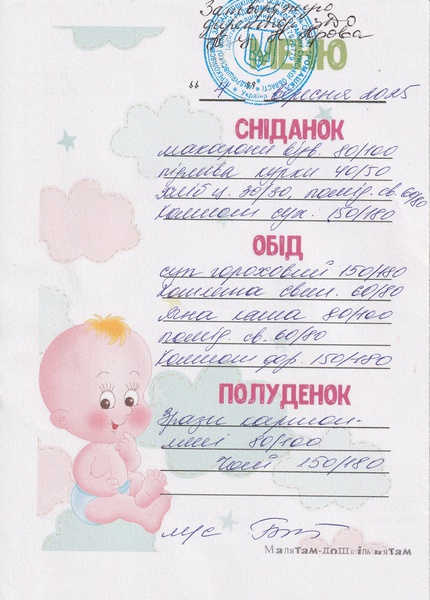 Затверджую
Директор ЗДО
МЕНЮ
" " вересня 2025
СНІДАНОК
макарони відв. 80/100
підлива курки 40/50
хліб ц. 30/30, помід. св. 60/80
Компот сух. 150/180
ОБІД
суп гороховий 150/180
Котлета свин. 60/80
Ячна каша 80/100
помід. св. 60/80
Компот 150/180
ПОЛУДЕНОК
Зрази картоп-
ляні 80/100
Чай 150/180
м/с
Малятам-дошкільнятам